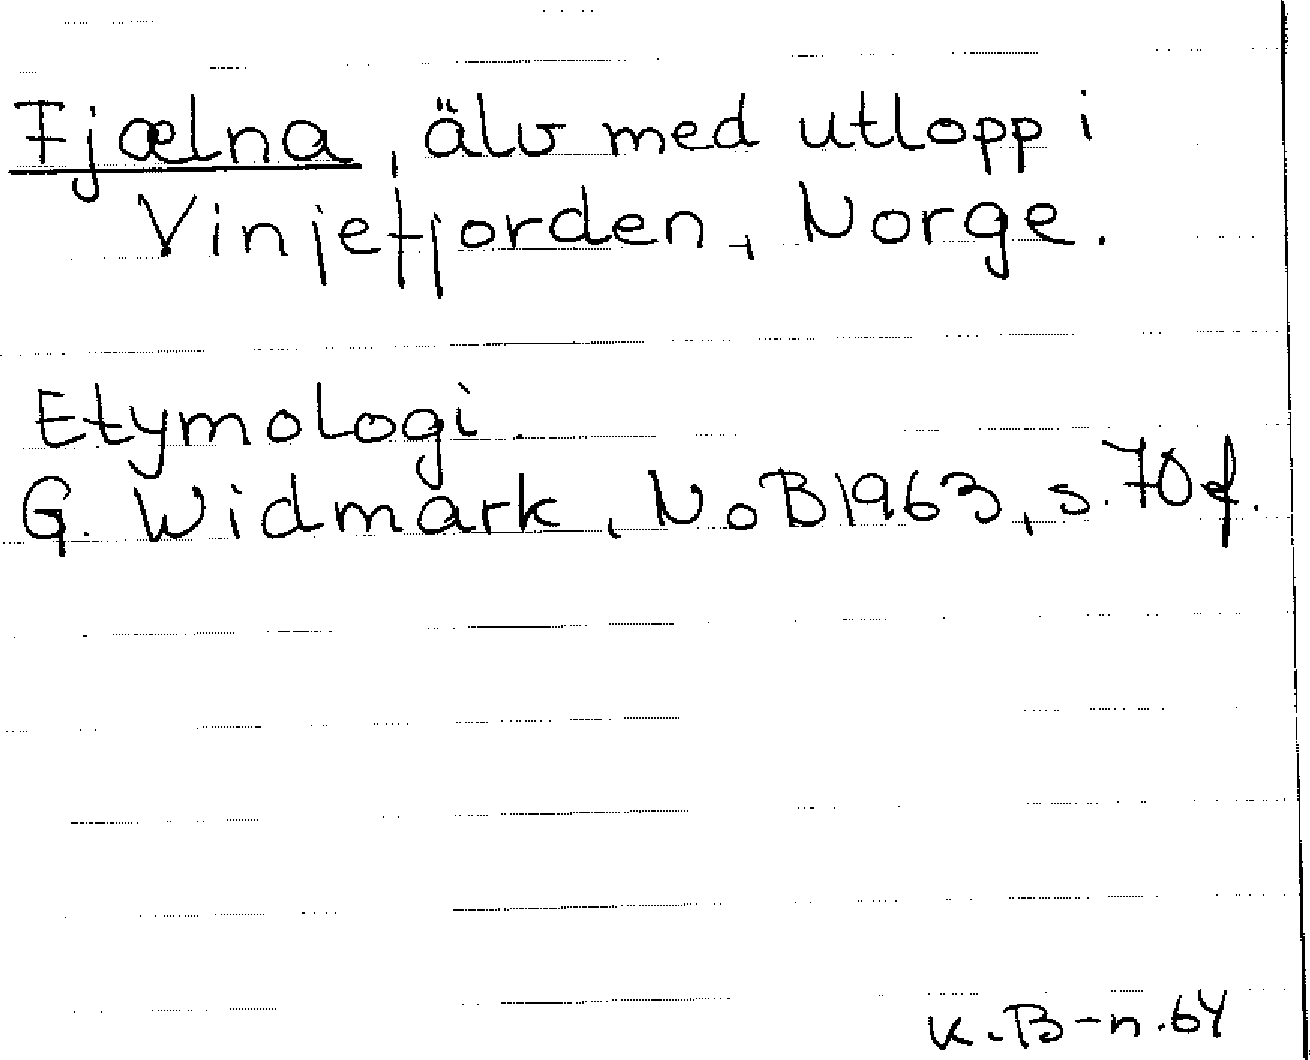 Fjælna, älv med utlopp i
Vinjefjorden, Norge.
Etymologi
G. Widmark, NoB 1963, s. 70 f.
K. B-n. 64